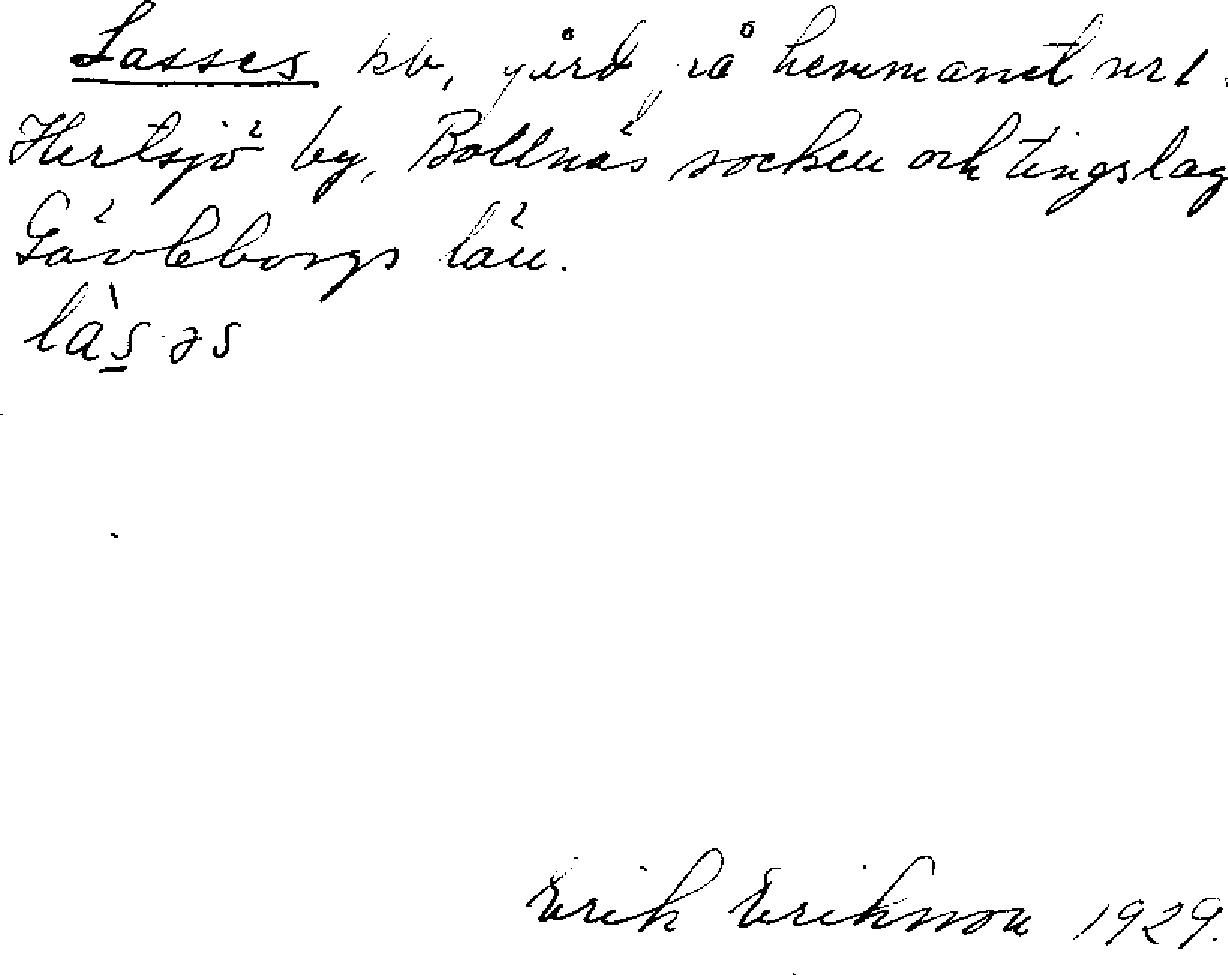 Lasses kb, gård på hemmanet nr 1.
Hertsjö by, Bollnäs socken och tingslag
Gävleborgs län.
là̀s̲əs
Erik Eriksson 1929.